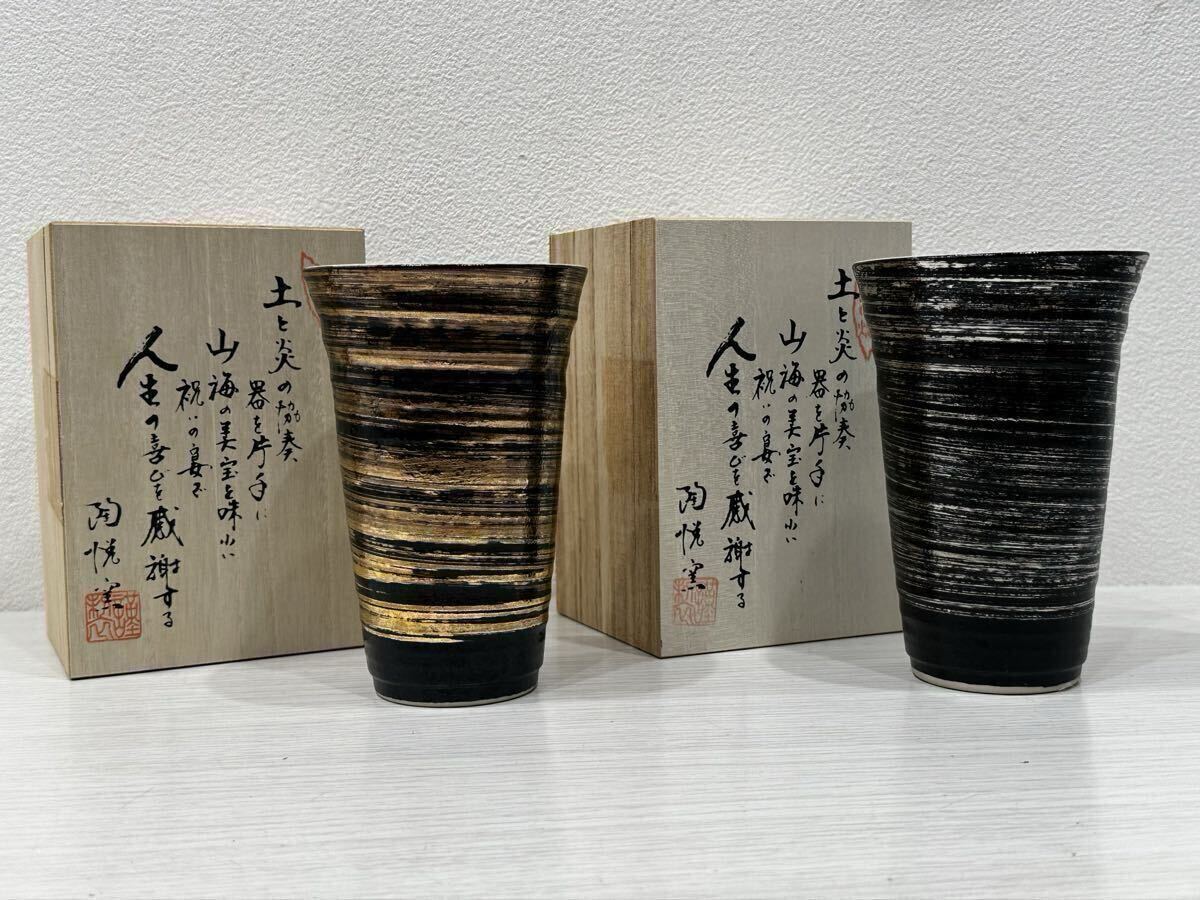 土と炎の協奏
器を片手に
山海の美宝を味わい
祝いの宴で
人生の喜びを感謝する
陶悦窯
土と炎の協奏
器を片手に
山海の美宝を味わい
祝いの宴で
人生の喜びを感謝する
陶悦窯